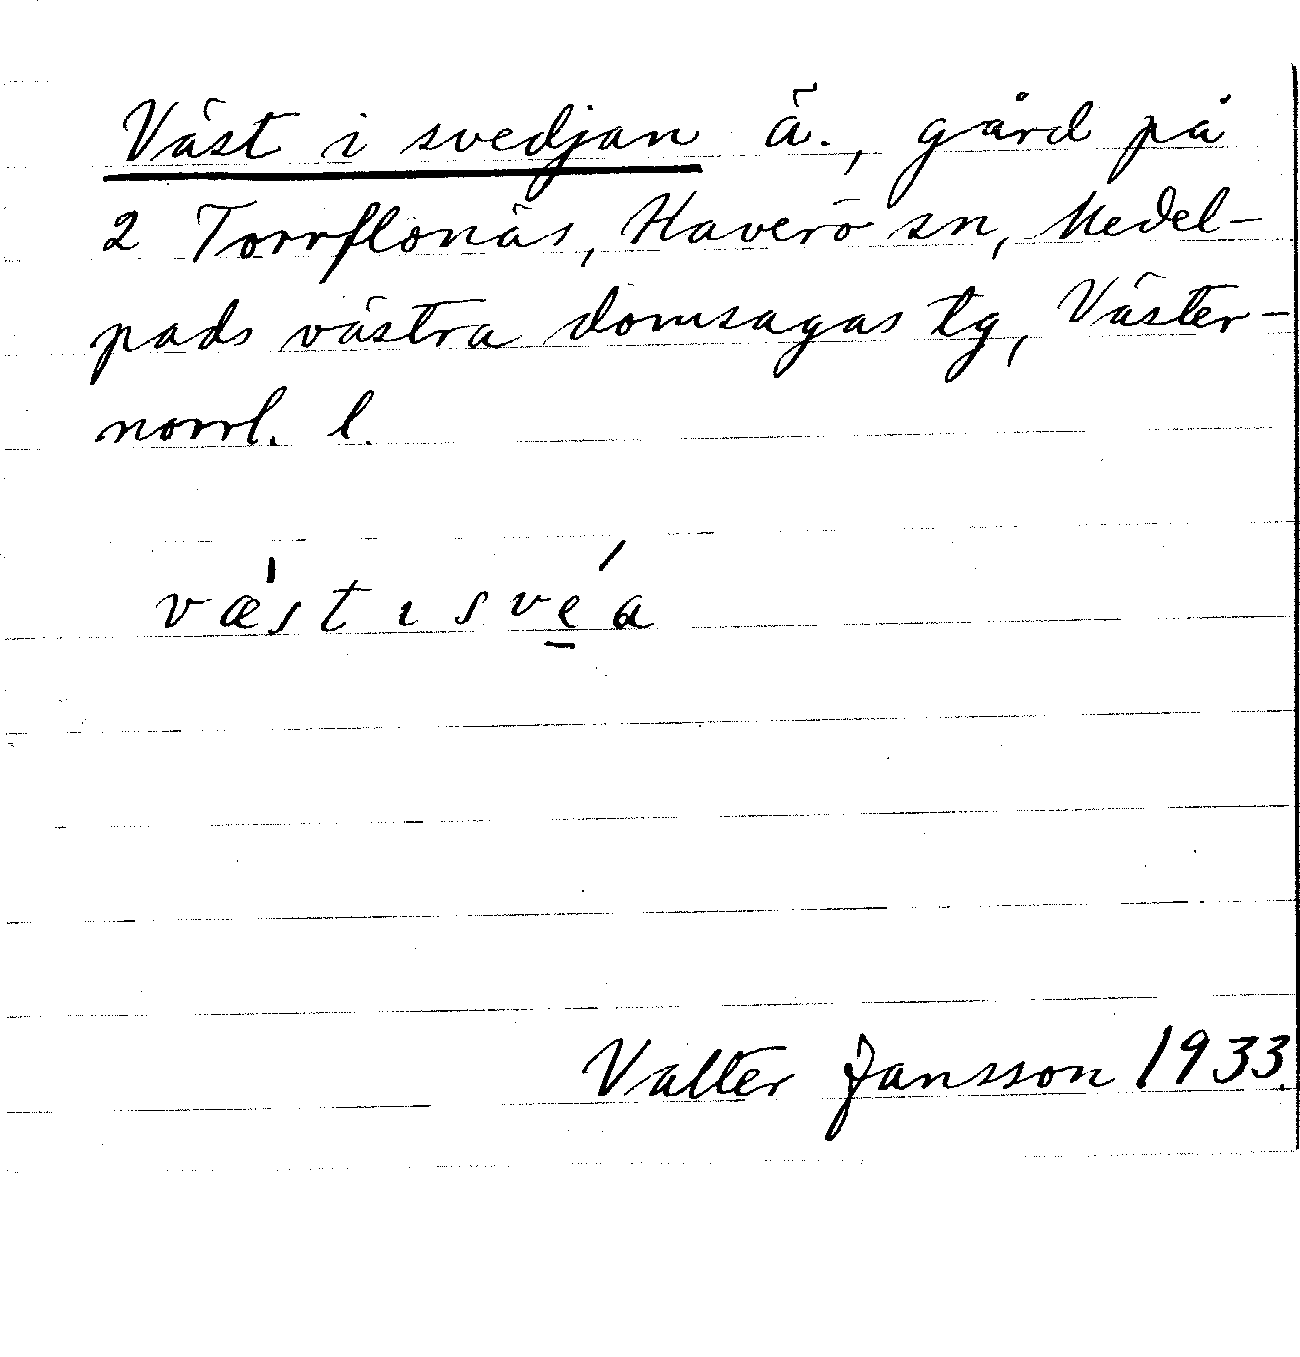 Väst i svedjan ä., gård på
2 Torrflonäs, Haverö sn, Medel-
pads västra domsagas tg, Väster-
norrl. l.
væ̍st ı sve̱´a
Valter Jansson 1933.